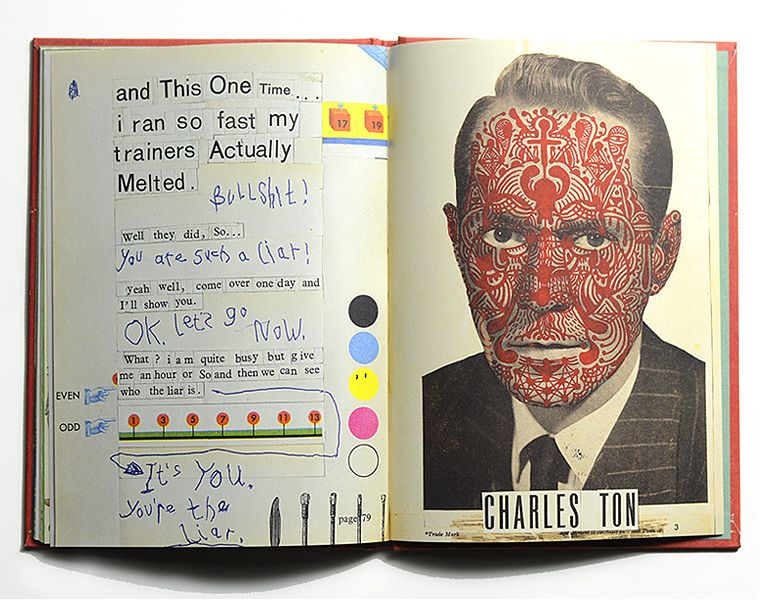 and This One Time...
i ran so fast my
trainers Actually
Melted.
BullShit!
Well they did, So...
You are such a liar!
yeah well, come over one day and
I'll show you.
OK. let's go Now.
What ? i am quite busy but give
me an hour or So and then we can see
who the liar is.
EVEN
ODD
1 3 5 7 9 11 13
It's You.
You're the
liar.
page 79
17 19
CHARLES TON
*Trade Mark
3